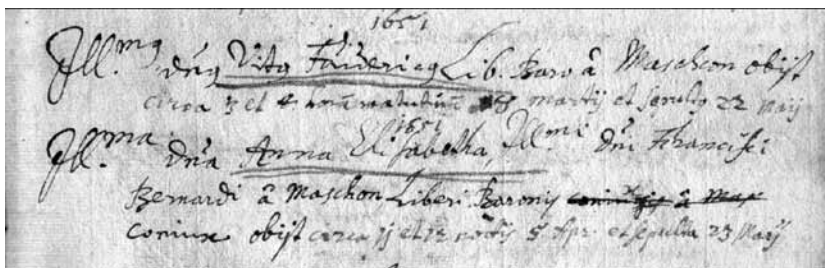 1651
Ill.mg dn̄g Vitg Fridericg Lib. Baro â Maschon obijt
circa 3 et 4 horā matutinā martij et sepultg 22 Maij
1651
Ill.ma dn̄a Anna Elisabetha, Ill.mi dn̄i Francisci
Bernardi â Maschon Liberi Baronis
Coniux obijt circa 11 et 12 noctis 5 Apr. et sepulta 23 Maij